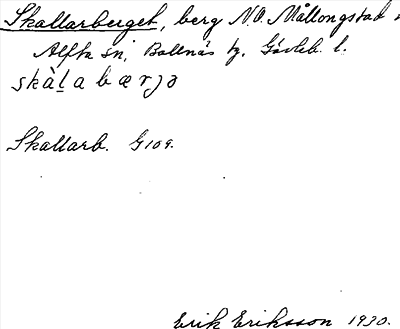 Skallarberget, berg N.O. Mållongstad
Alfta sn, Bollnäs tg. Gävleb. l.
skàl̲a bærjə
Skallarb. G109.
Erik Eriksson 1930.